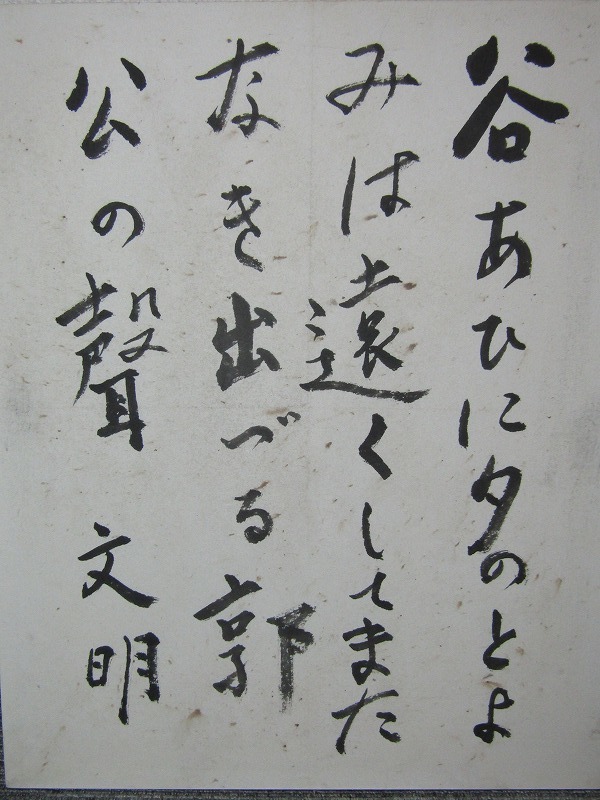 谷あひに夕のとよ
みは遠くしてまた
なき出づる郭
公の聲 文明